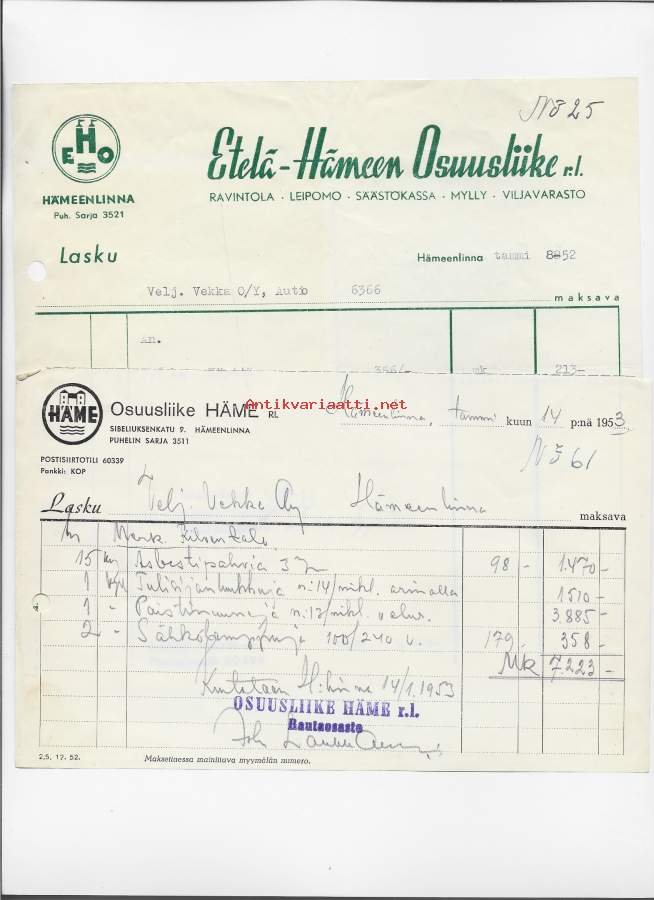 Nö 25
EHO
Etelä-Hämeen Osuusliike r.l.
HÄMEENLINNA
Puh. Sarja 3521
RAVINTOLA · LEIPOMO · SÄÄSTÖKASSA · MYLLY · VILJAVARASTO
Lasku
Hämeenlinna tammi 8 52
Velj. Vekka O/Y, Autio 6366
maksava
An.
356/- mk 213-
HÄME
Osuusliike HÄME RL
Antikvariaatti.net
SIBELIUKSENKATU 9. HÄMEENLINNA
PUHELIN SARJA 3511
Hämeenlinna, tammi kuun 14 p:nä 1953
POSTISIIRTOTILI 60339
Pankki: KOP
Nö 61
Lasku Velj. Vekka Oy Hämeenlinna maksava
15 kg Asbestipahvia 3 98 - 1.470 -
1 n:14/nikl. 1510 -
1 " n:13/nikl. 3.885 -
2 " Sähkölamppuja 100/240 v. 179 358 -
Mk 7.223 -
Kuitataan H:linna 14/1.1953
OSUUSLIIKE HÄME r.l.
Rautaosasto
2,5. 17. 52.
Maksettaessa mainittava myymälän numero.